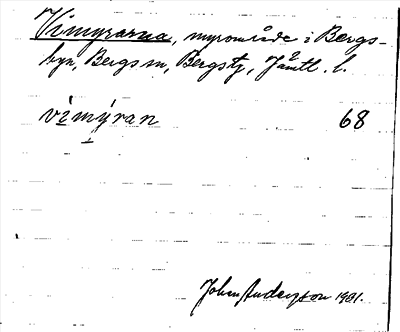 Vimyrarna, myrområde i Bergs-
byn, Bergs sn, Bergs tg, Jämtl. l.
vimýran 68
John Anderson 1931.